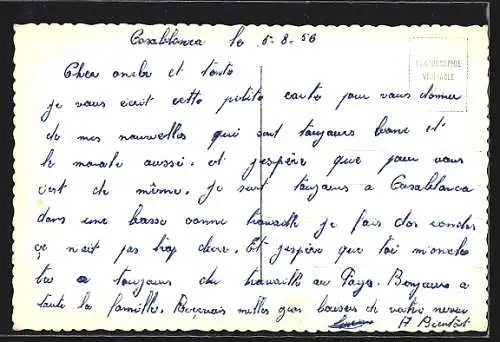 Casablanca le 5-8-56
Cher oncle et tante
PHOTOGRAPHIE
VÉRITABLE
je vous écrit cette petite carte pour vous donner
de mes nouvelles qui sont toujours bonne et
le morale aussi. et j'espère que pour vous
c'est de même. Je suis toujours a Casablanca
dans une basse comme travaille je fais des
ce n'ait pas trop dure. Et j'espère que toi mon oncle
tu a toujours du travaille au Pays. Bonjours a
toute la famille. Recevais milles gros baisers de votre neveu
A Bientôt